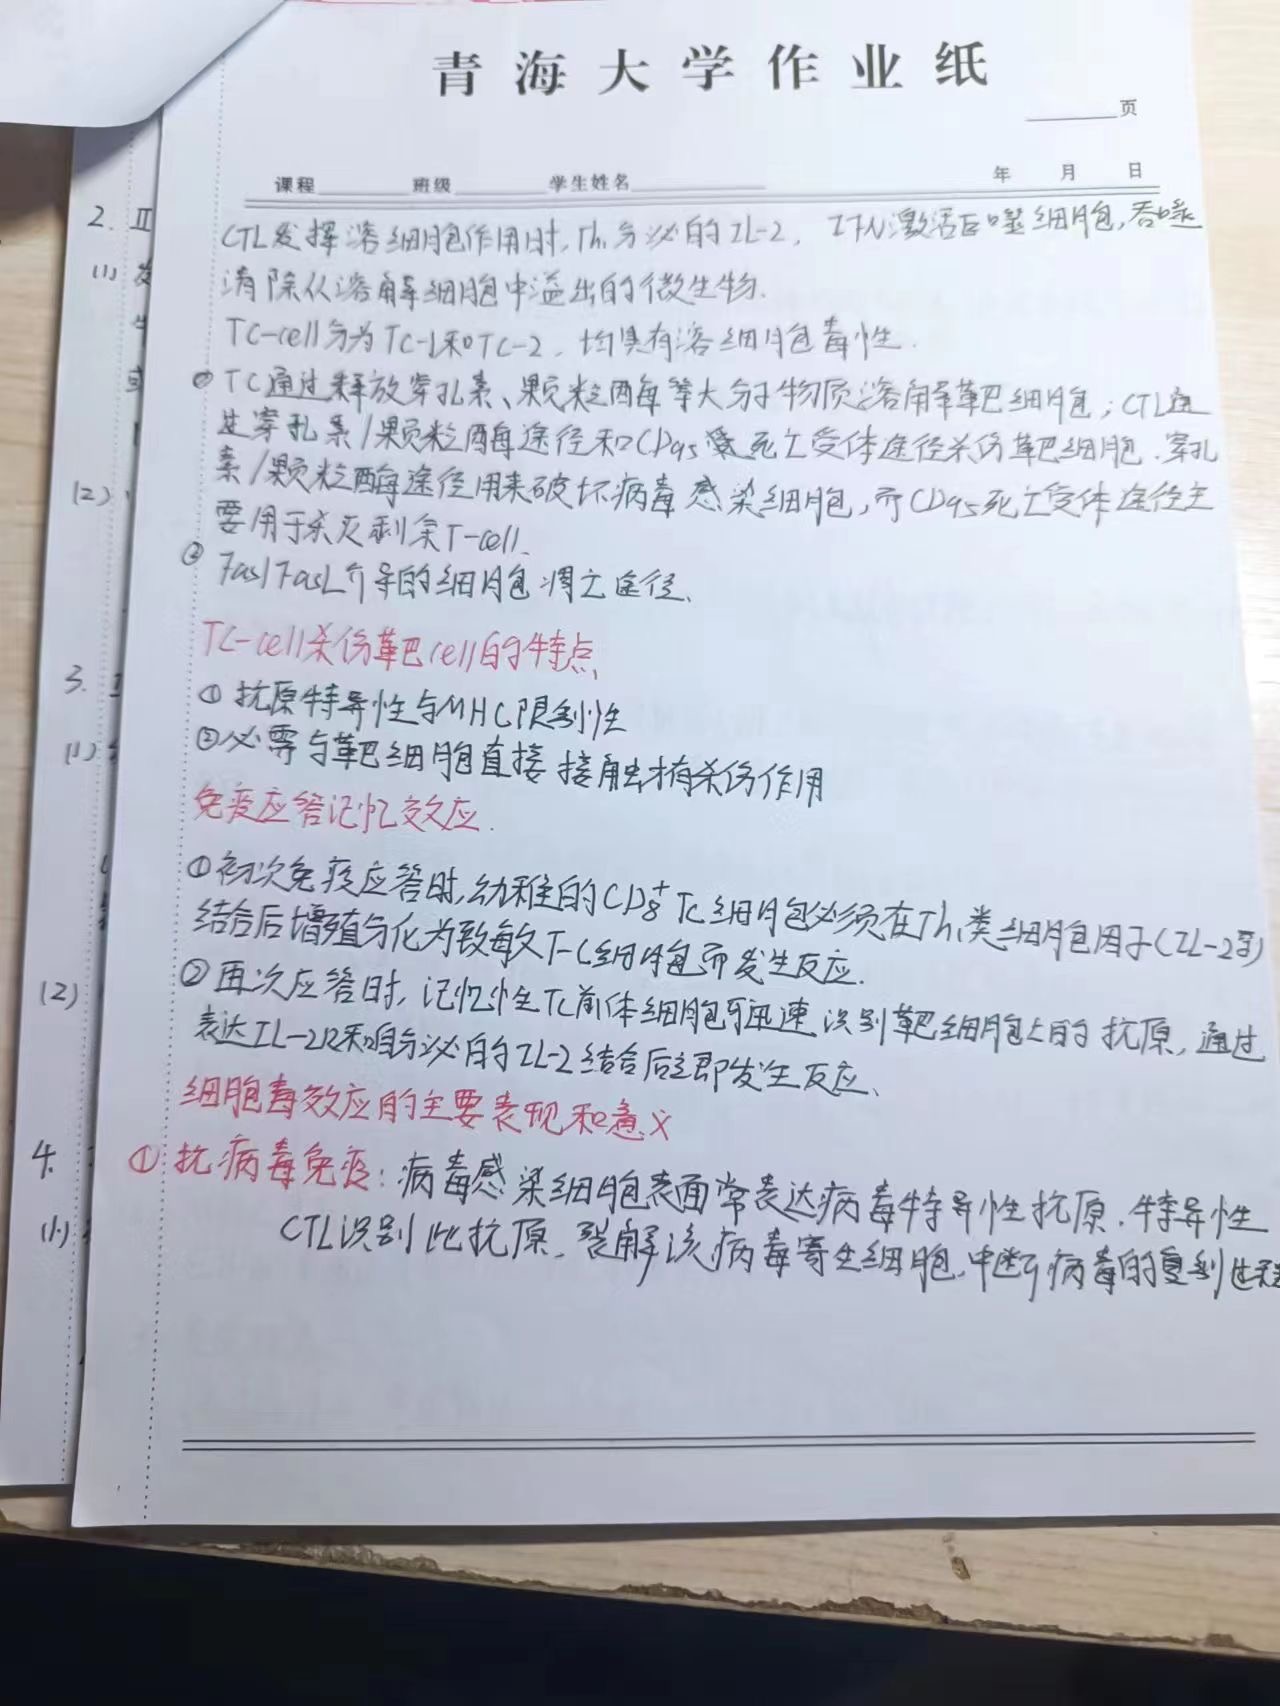 青海大学作业纸
页
课程 班级 学生姓名 年 月 日
CTL发挥溶细胞作用时,Th₁分泌的IL-2, IFN激活巨噬细胞,吞噬
清除从溶解细胞中溢出的微生物.
TC-cell分为TC-1和TC-2,均具有溶细胞毒性.
① TC通过释放穿孔素、颗粒酶等大分子物质溶解靶细胞;CTL通
过穿孔素/颗粒酶途径和CD95 死亡受体途径杀伤靶细胞.穿孔
素/颗粒酶途径用来破坏病毒感染细胞,而CD95死亡受体途径主
要用于杀灭剩余T-cell.
② Fas/FasL介导的细胞凋亡途径、
TC-cell杀伤靶cell的特点,
① 抗原特异性与MHC限制性
②必需与靶细胞直接接触才有杀伤作用
免疫应答记忆效应.
①初次免疫应答时,幼稚的CD8⁺Tc细胞必须在Th₁类细胞因子(IL-2等)
结合后增殖分化为致敏T-C细胞而发生反应.
②再次应答时,记忆性Tc前体细胞可迅速识别靶细胞上的抗原,通过
表达IL-2R和自分泌的IL-2结合后立即发生反应、
细胞毒效应的主要表现和意义
① 抗病毒免疫:病毒感染细胞表面常表达病毒特异性抗原.特异性
CTL识别此抗原,裂解该病毒寄生细胞,中断病毒的复制过程
2.
(1) 发
(2)
3.
(1)
(2)
4.
(1)